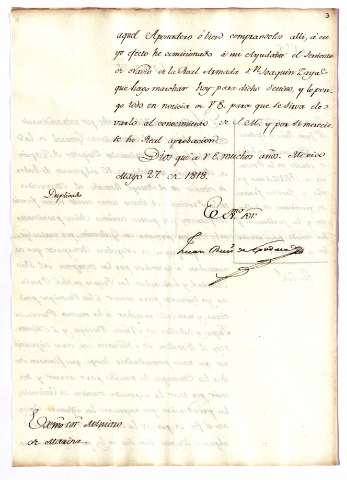 3
aquel Apostadero ó bien comprandolos alli, á cu
yo efecto he comisionado á mi Ayudante el Teniente
de Navio de la Real Armada Dn. Joaquin
que hago marchar hoy para dicho destino, y lo pon
go todo en noticia de V.E. para que se sirva ele
varlo al conocimiento de S.M. y por si merecie
re su Real aprobacion.
Dios gue. á V.E. muchos años. Mexico
Mayo 27 de 1818.
Duplicado
Exmo. Sor.
Juan Ruiz de Apodaca
Exmo. Sor. Ministro
de Marina.